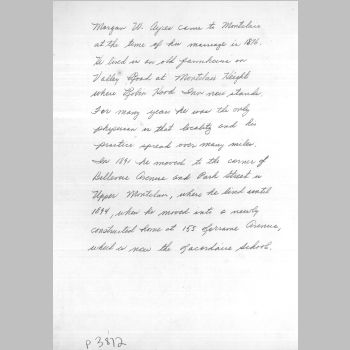 Morgan W. Ayres came to Montclair
at the time of his marriage in 1876.
He lived in an old farmhouse on
Valley Road at Montclair Heights
where Robin Hood Inn now stands
For many years he was the only
physician in that locality and his
practice spread over many miles.
In 1891 he moved to the corner of
Bellevue Avenue and Park Street in
Upper Montclair, where he lived until
1894, when he moved into a newly
constructed home at 155 Lorraine Avenue,
which is now the Lacordaire School.
p 3872